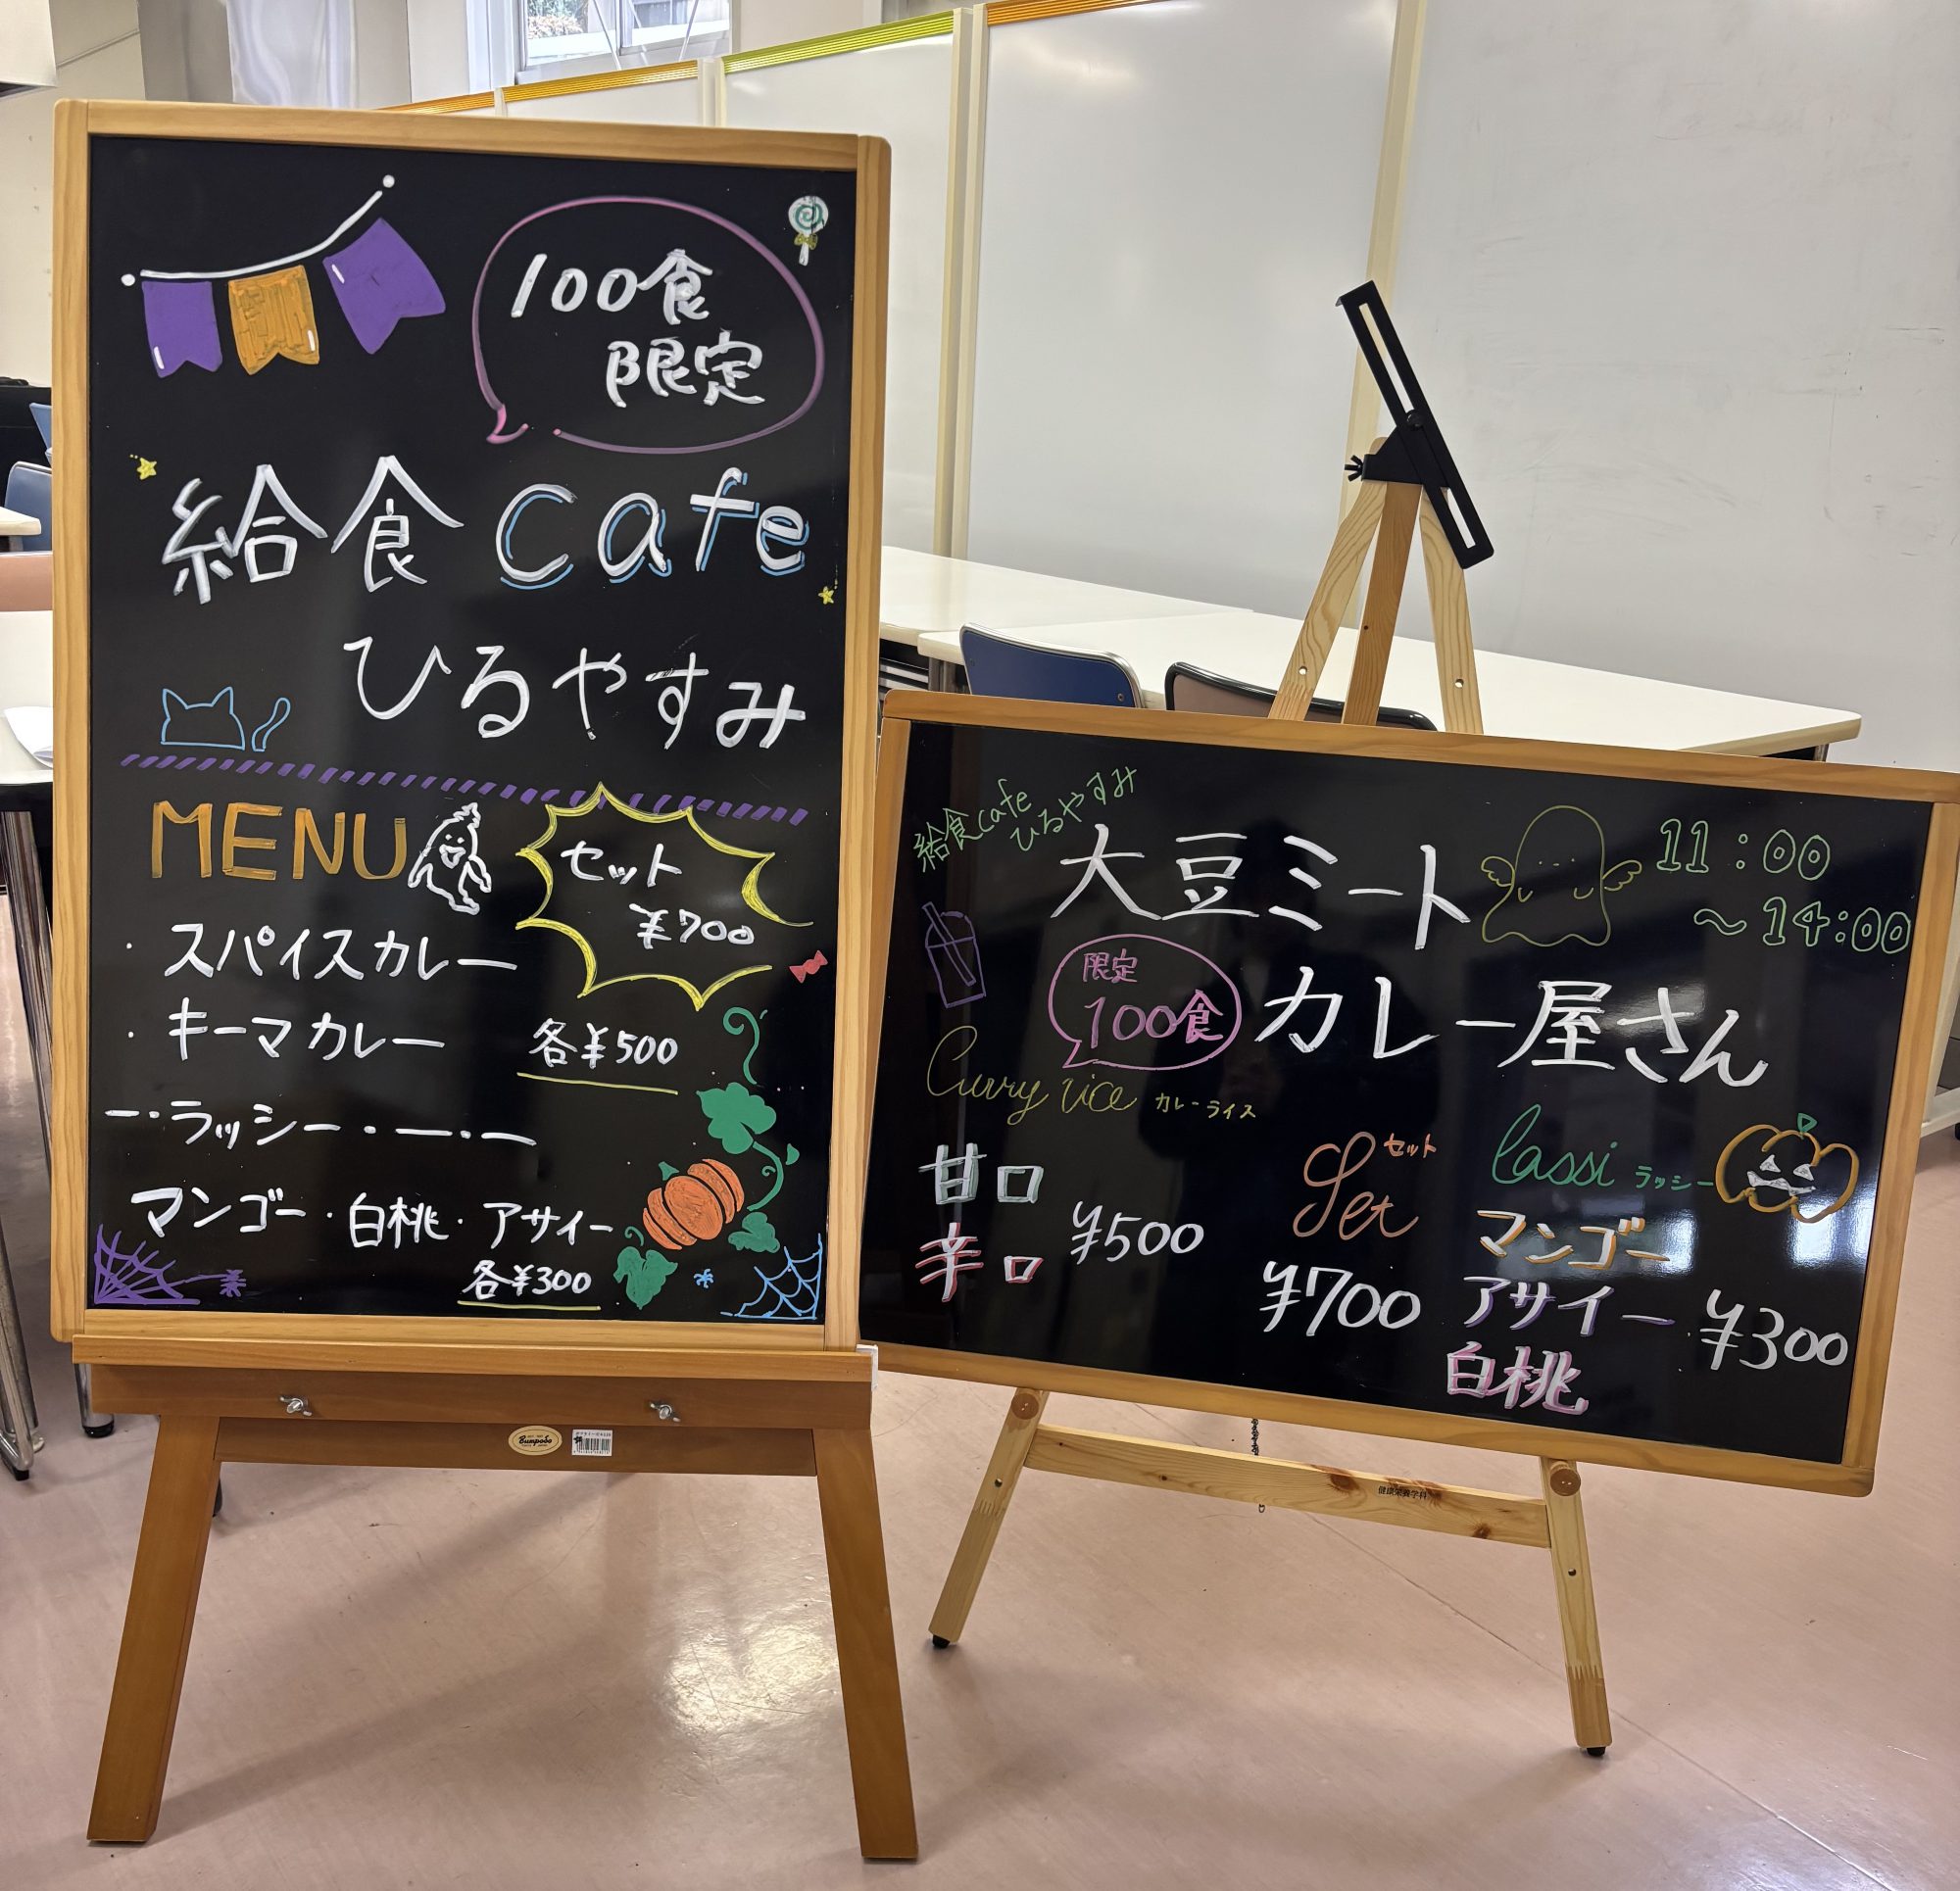 100食
限定
給食 cafe
ひるやすみ
MENU
セット
¥700
・スパイスカレー
・キーマカレー 各¥500
ー・ラッシー・ー・ー
マンゴー・白桃・アサイー
各¥300
Bumpodo
給食cafe
ひるやすみ
大豆ミート
カレー屋さん
11:00
~14:00
限定
100食
Curry rice カレーライス
甘口
辛口
¥500
Set セット
¥700
lassi ラッシー
マンゴー
アサイー
白桃
¥300
健康栄養学科